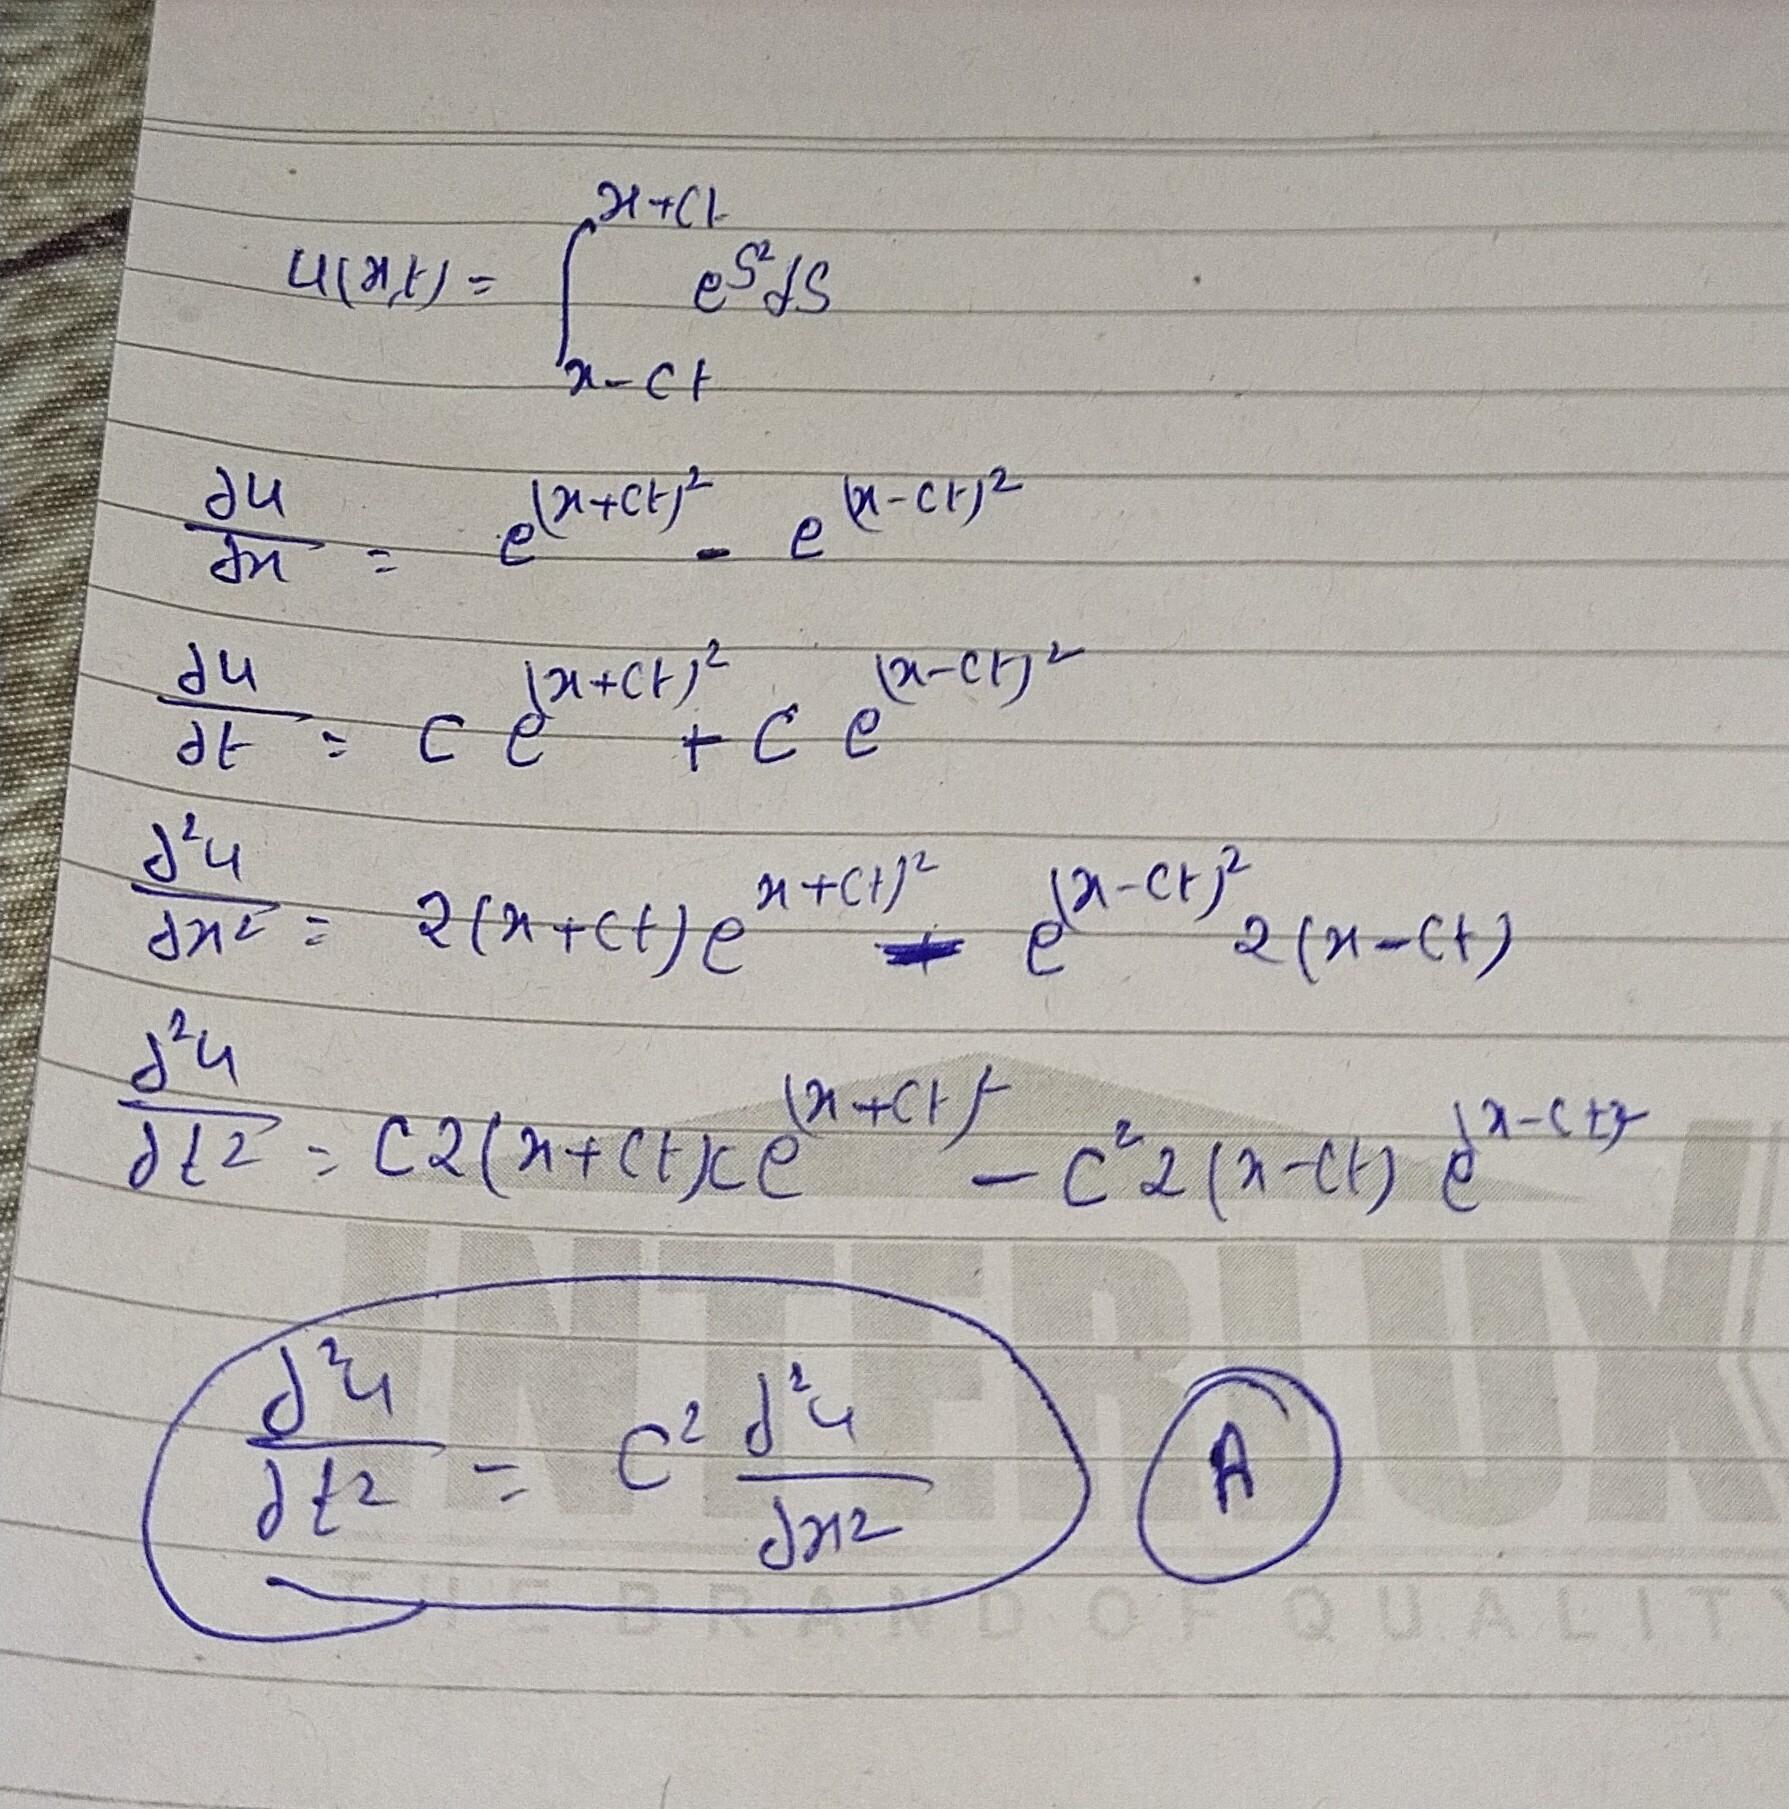 u(x,t) = ∫_{x-ct}^{x+ct} e^{s²} ds
∂u/∂x = e^{(x+ct)²} - e^{(x-ct)²}
∂u/∂t = c e^{(x+ct)²} + c e^{(x-ct)²}
∂²u/∂x² = 2(x+ct) e^{x+ct)²} - e^{(x-ct)²} 2(x-ct)
∂²u/∂t² = c2(x+ct)c e^{(x+ct)²} - c² 2(x-ct) e^{(x-ct)²}
INTERLUX
∂²u/∂t² = c² ∂²u/∂x² A
THE BRAND OF QUALITY